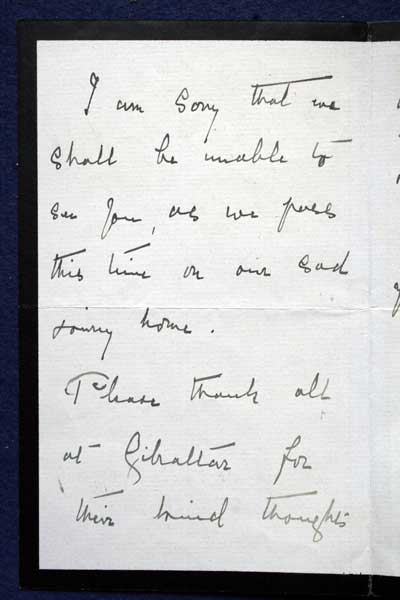 I am sorry that we
shall be unable to
see you, as we pass
this time on our sad
journey home.
Please thank all
at Gibraltar for
their kind thoughts